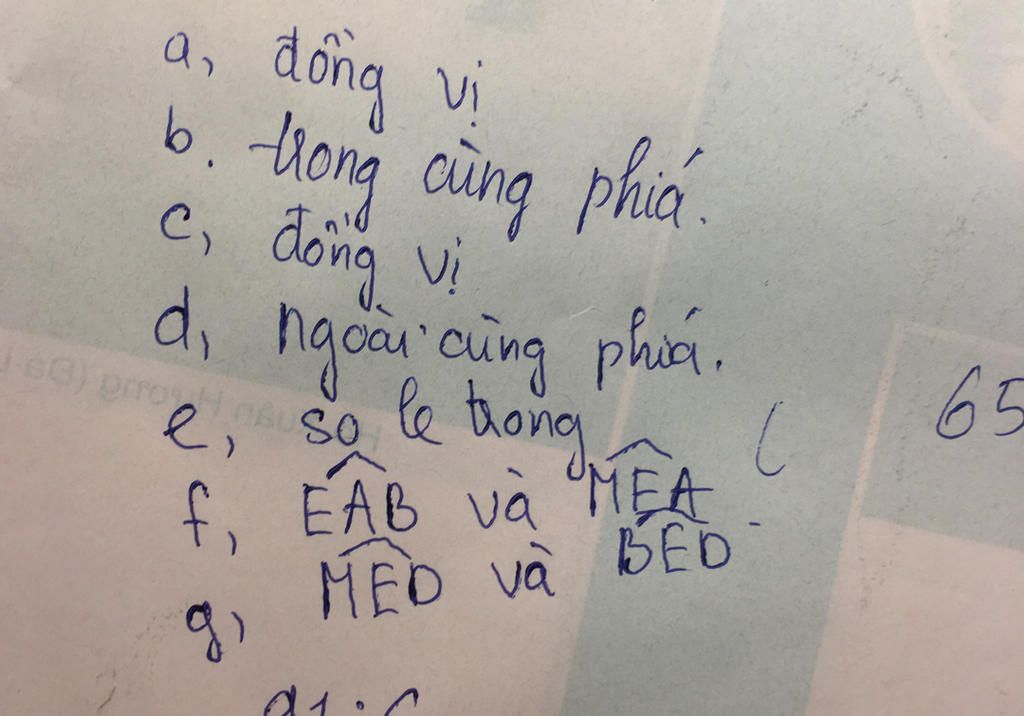 a, đồng vị
b. trong cùng phía.
c, đồng vị
d, ngoài cùng phía.
e, so le trong ( 65
f, EAB và MEA
g, MED và BED